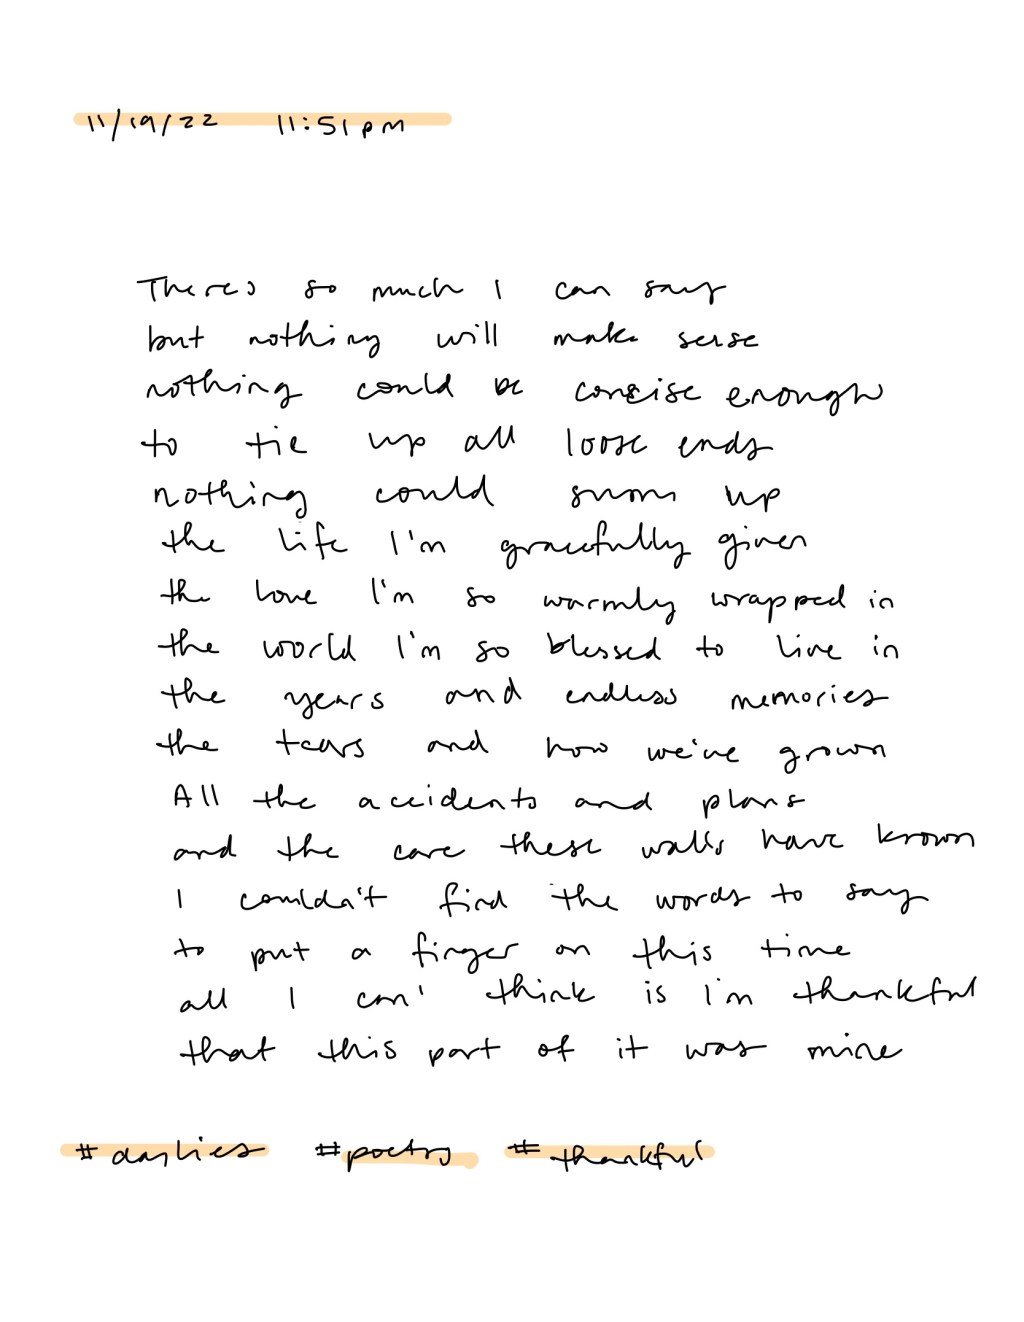 11/19/22 11:51pm
Theres so much I can say
but nothing will make sense
nothing could be concise enough
to tie up all loose ends
nothing could sum up
the life I'm gracefully given
the love I'm so warmly wrapped in
the world I'm so blessed to live in
the years and endless memories
the tears and how we've grown
All the accidents and plans
and the care these walls have known
I couldn't find the words to say
to put a finger on this time
all I can think is I'm thankful
that this part of it was mine
#daylies #poetry #thankful